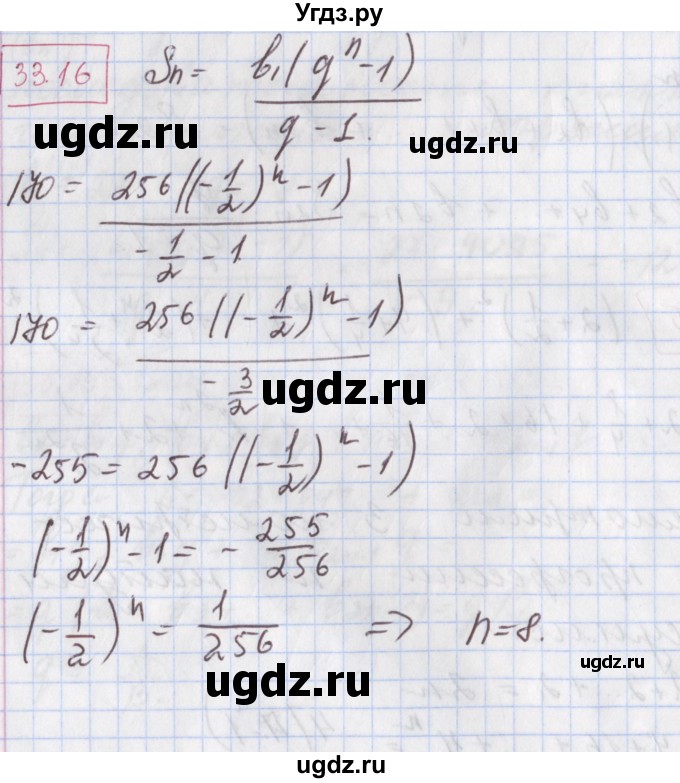 Угдз.ру
33.16 Sn = b₁(qⁿ - 1) / q - 1.
ugdz.ru ugdz.ru
170 = 256((-1/2)ⁿ - 1) / -1/2 - 1
170 = 256((-1/2)ⁿ - 1) / -3/2
ugdz.ru
-255 = 256((-1/2)ⁿ - 1)
(-1/2)ⁿ - 1 = - 255/256
ugdz.ru
(-1/2)ⁿ = 1/256 => n = 8.
ugdz.ru
ugdz.ru
ugdz.ru